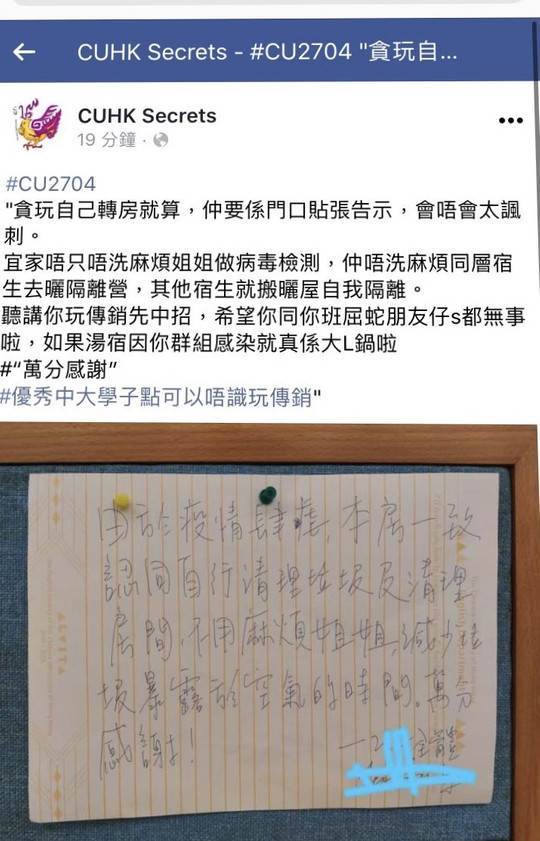 CUHK Secrets - #CU2704 "貪玩自...
CUHK Secrets
19 分鐘 ·
#CU2704
"貪玩自己轉房就算，仲要係門口貼張告示，會唔會太諷
刺。
宜家唔只唔洗麻煩姐姐做病毒檢測，仲唔洗麻煩同層宿
生去曬隔離營，其他宿生就搬曬屋自我隔離。
聽講你玩傳銷先中招，希望你同你班屈蛇朋友仔s都無事
啦，如果湯宿因你群組感染就真係大L鍋啦
#“萬分感謝”
#優秀中大學子點可以唔識玩傳銷"
由於疫情肆虐，本房一致
認同自行清理垃圾及清理
房間，不用麻煩姐姐，減少垃
圾暴露於空氣的時間。萬分
感謝！